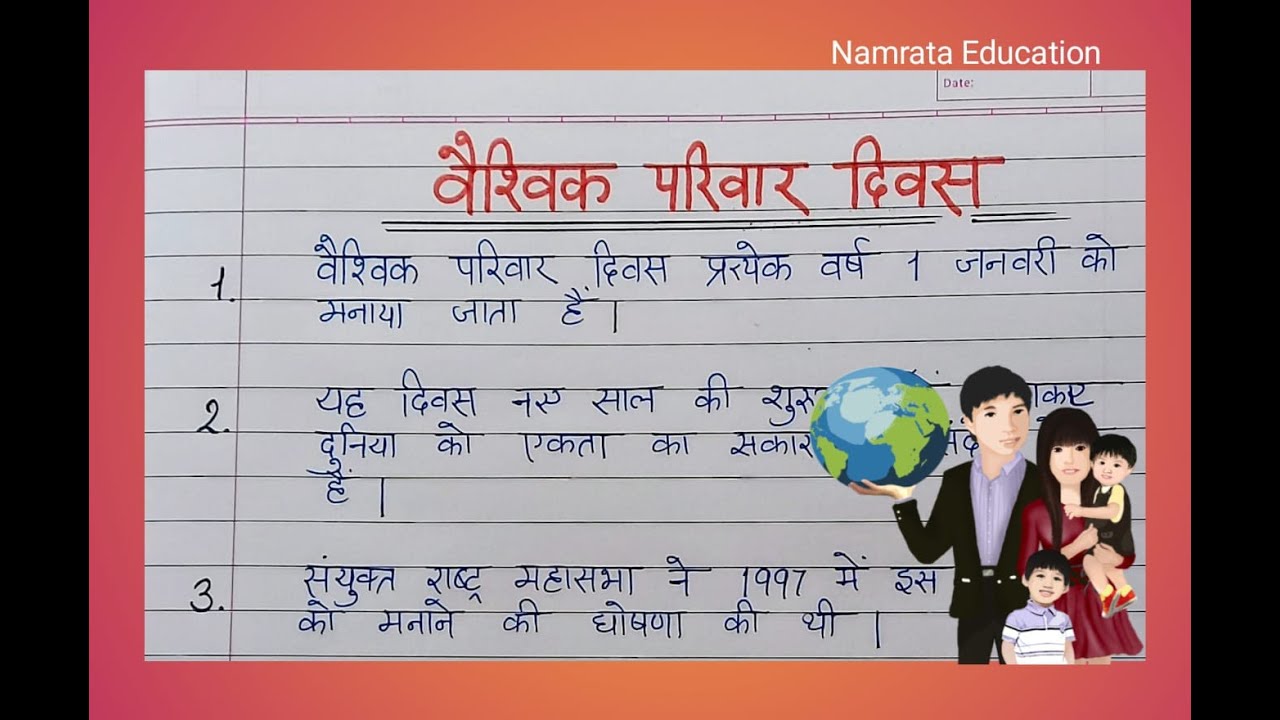 Namrata Education
Date:
वैश्विक परिवार दिवस
1. वैश्विक परिवार दिवस प्रत्येक वर्ष 1 जनवरी को
मनाया जाता हैं।
2. यह दिवस नए साल की
दुनिया को एकता का
हैं।
3. संयुक्त राष्ट्र महासभा ने 1997 में इस
को मनाने की घोषणा की थी।